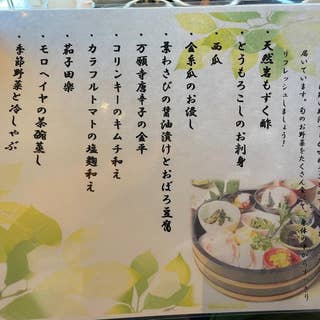 届いています。旬のお野菜をたくさん
リフレッシュしましょう!
・天然岩もずく酢
・とうもろこしのお刺身
・西瓜
・金糸瓜のお浸し
・葉わさびの醤油漬けとおぼろ豆腐
・万願寺唐辛子の金平
・コリンキーのキムチ和え
・カラフルトマトの塩麹和え
・茄子田楽
・モロヘイヤの茶碗蒸し
・季節野菜と冷しゃぶ